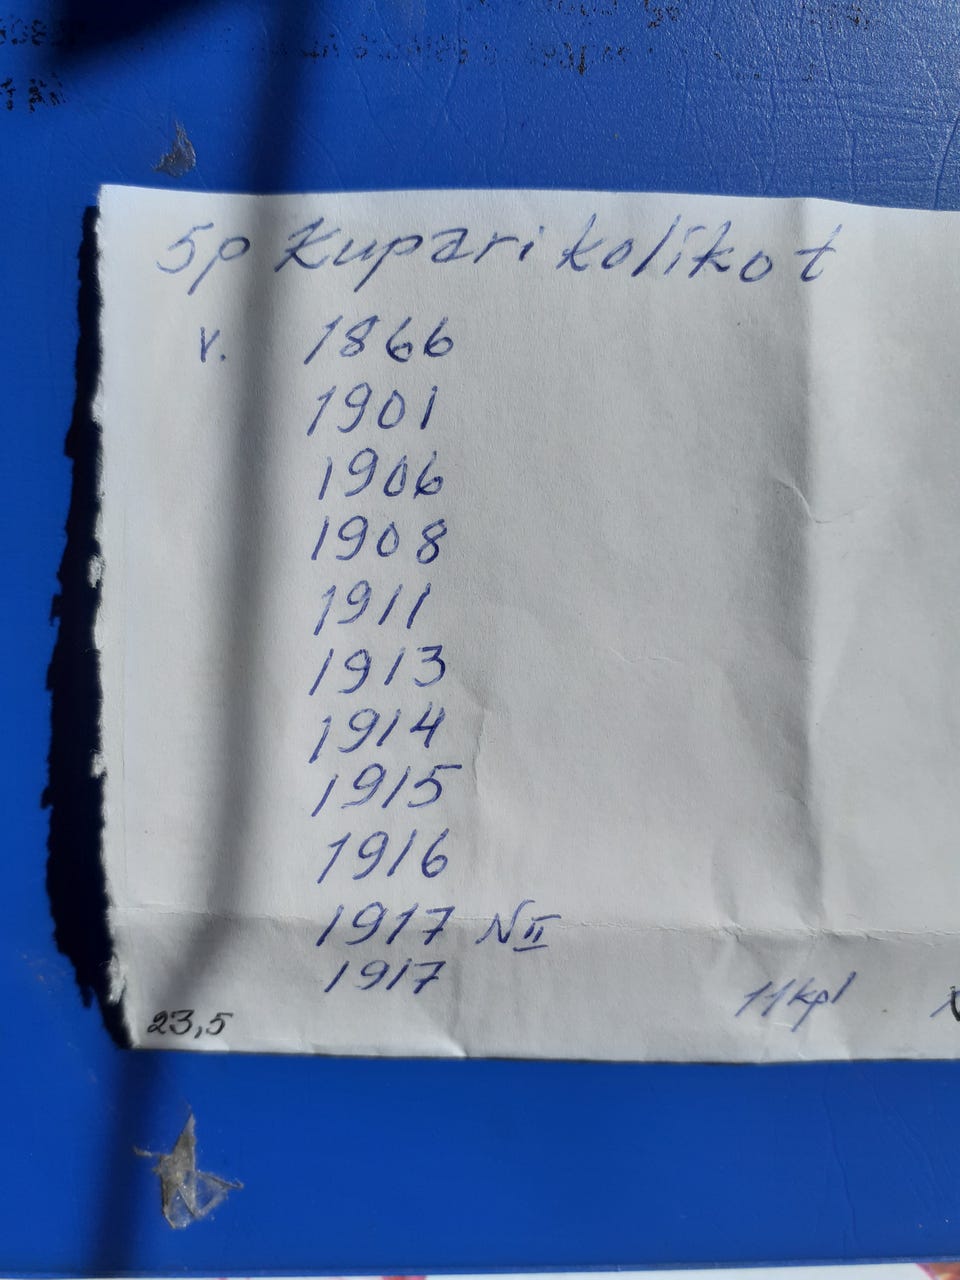 5p Kupari kolikot
v. 1866
1901
1906
1908
1911
1913
1914
1915
1916
1917 NII
1917
11kpl
23,5